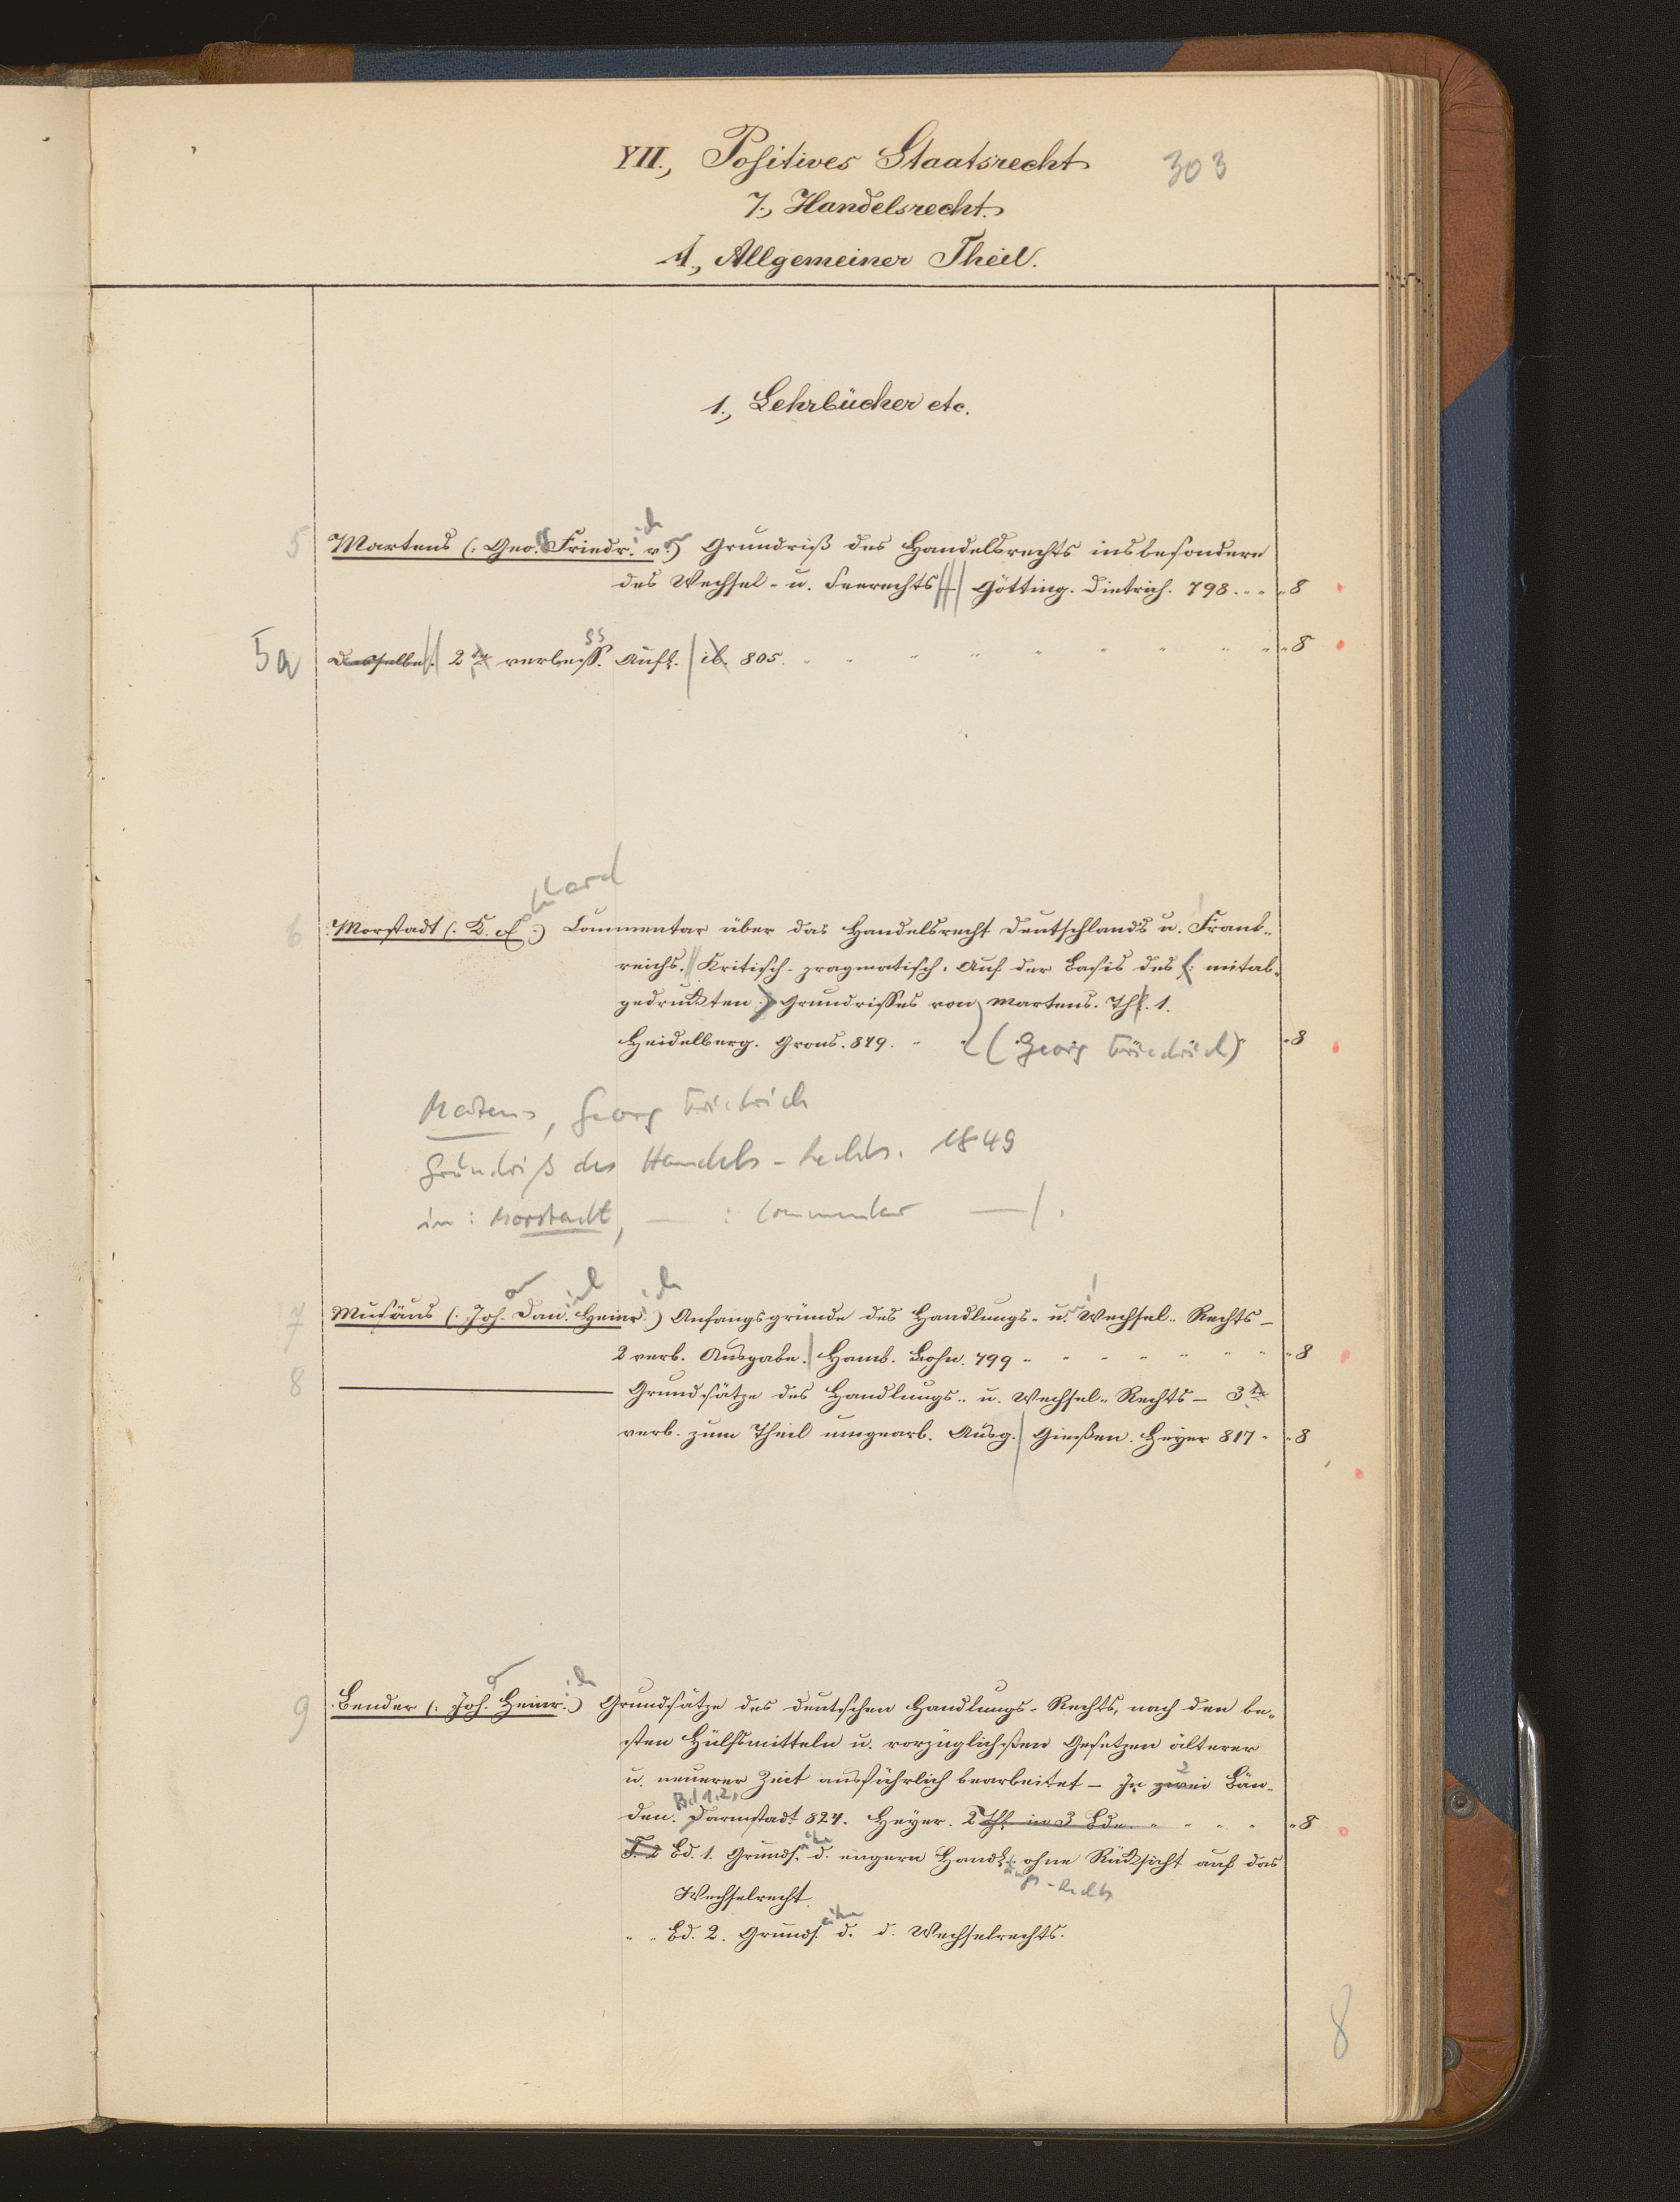 YII., Positives Staatsrecht
303
7., Handelsrecht.
A., Allgemeiner Theil.
1., Lehrbücher etc.
5 Martens (: Geo. Friedr. v. :) Grundriß des Handelsrechts insbesondere
des Wechsel- u. Seerechts Götting. Dietrich. 798. 8
5a Dasselbe. 2te verbess. Aufl. ib. 805. 8
6 Morstadt (: K. E. :) Commentar über das Handelsrecht Deutschlands u. Frank-
reichs. Kritisch-pragmatisch. Auf der Basis des (: mitab-
gedruckten :) Grundrisses von Martens. Thl. 1.
Heidelberg. Groos. 849. (Georg Friedrich) 8
Martens, Georg Friedrich
Grundriß des Handels-Rechts. 1849
in: Morstadt, — : Commentar —/.
7 Musäus (: Joh. Dan. Heinr. :) Anfangsgründe des Handlungs- u. Wechsel-Rechts —
2 verb. Ausgabe. Hamb. Bohn. 799 8
8 ——— Grundsätze des Handlungs- u. Wechsel-Rechts — 3te
verb. zum Theil umgearb. Ausg. Gießen. Heyer 817 8
9 Bender (: Joh. Heinr. :) Grundsätze des deutschen Handlungs-Rechts, nach den be-
sten Hülfsmitteln u. vorzüglichsten Gesetzen älterer
u. neuerer Zeit ausführlich bearbeitet — In zwei 2 Bän-
den. Bd 1.2, Darmstadt 824. Heyer. 2 Thl. in 3 Bde. 8
T. 2 Bd. 1. Grunds. d. engern Handl. ungs-Rechts ohne Rücksicht auf das
Wechselrecht.
" " Bd. 2. Grunds. d. d. Wechselrechts.
8